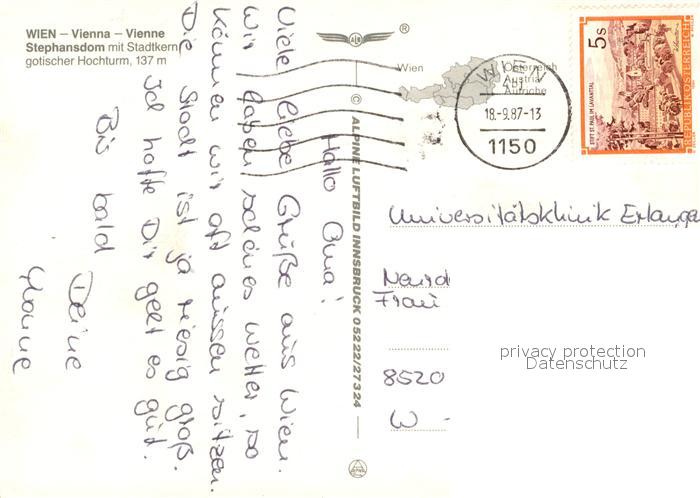 WIEN – Vienna – Vienne
Stephansdom mit Stadtkern
gotischer Hochturm, 137 m
Hallo Oma!
Viele liebe Grüße aus Wien.
Wir haben schönes Wetter, so
können wir oft aussen sitzen.
Die Stadt ist ja riesig groß.
Ich hoffe Dir geht es gut.
Bis bald
Deine
© ALPINE LUFTBILD INNSBRUCK 05222/27324
®
Wien
Österreich
Austria
Autriche
WIEN
18.-9.87-13
1150
5s
STIFT ST. PAUL IM LAVANTTAL
REPUBLIK ÖSTERREICH
Universitätsklinik Erlangen
Frau
8520
W -
privacy protection
Datenschutz